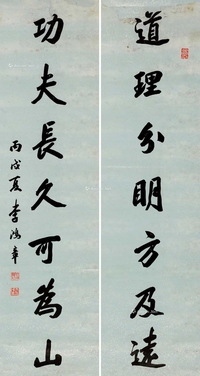 道理分明方及遠
功夫長久可為山
丙戌夏 李鴻章